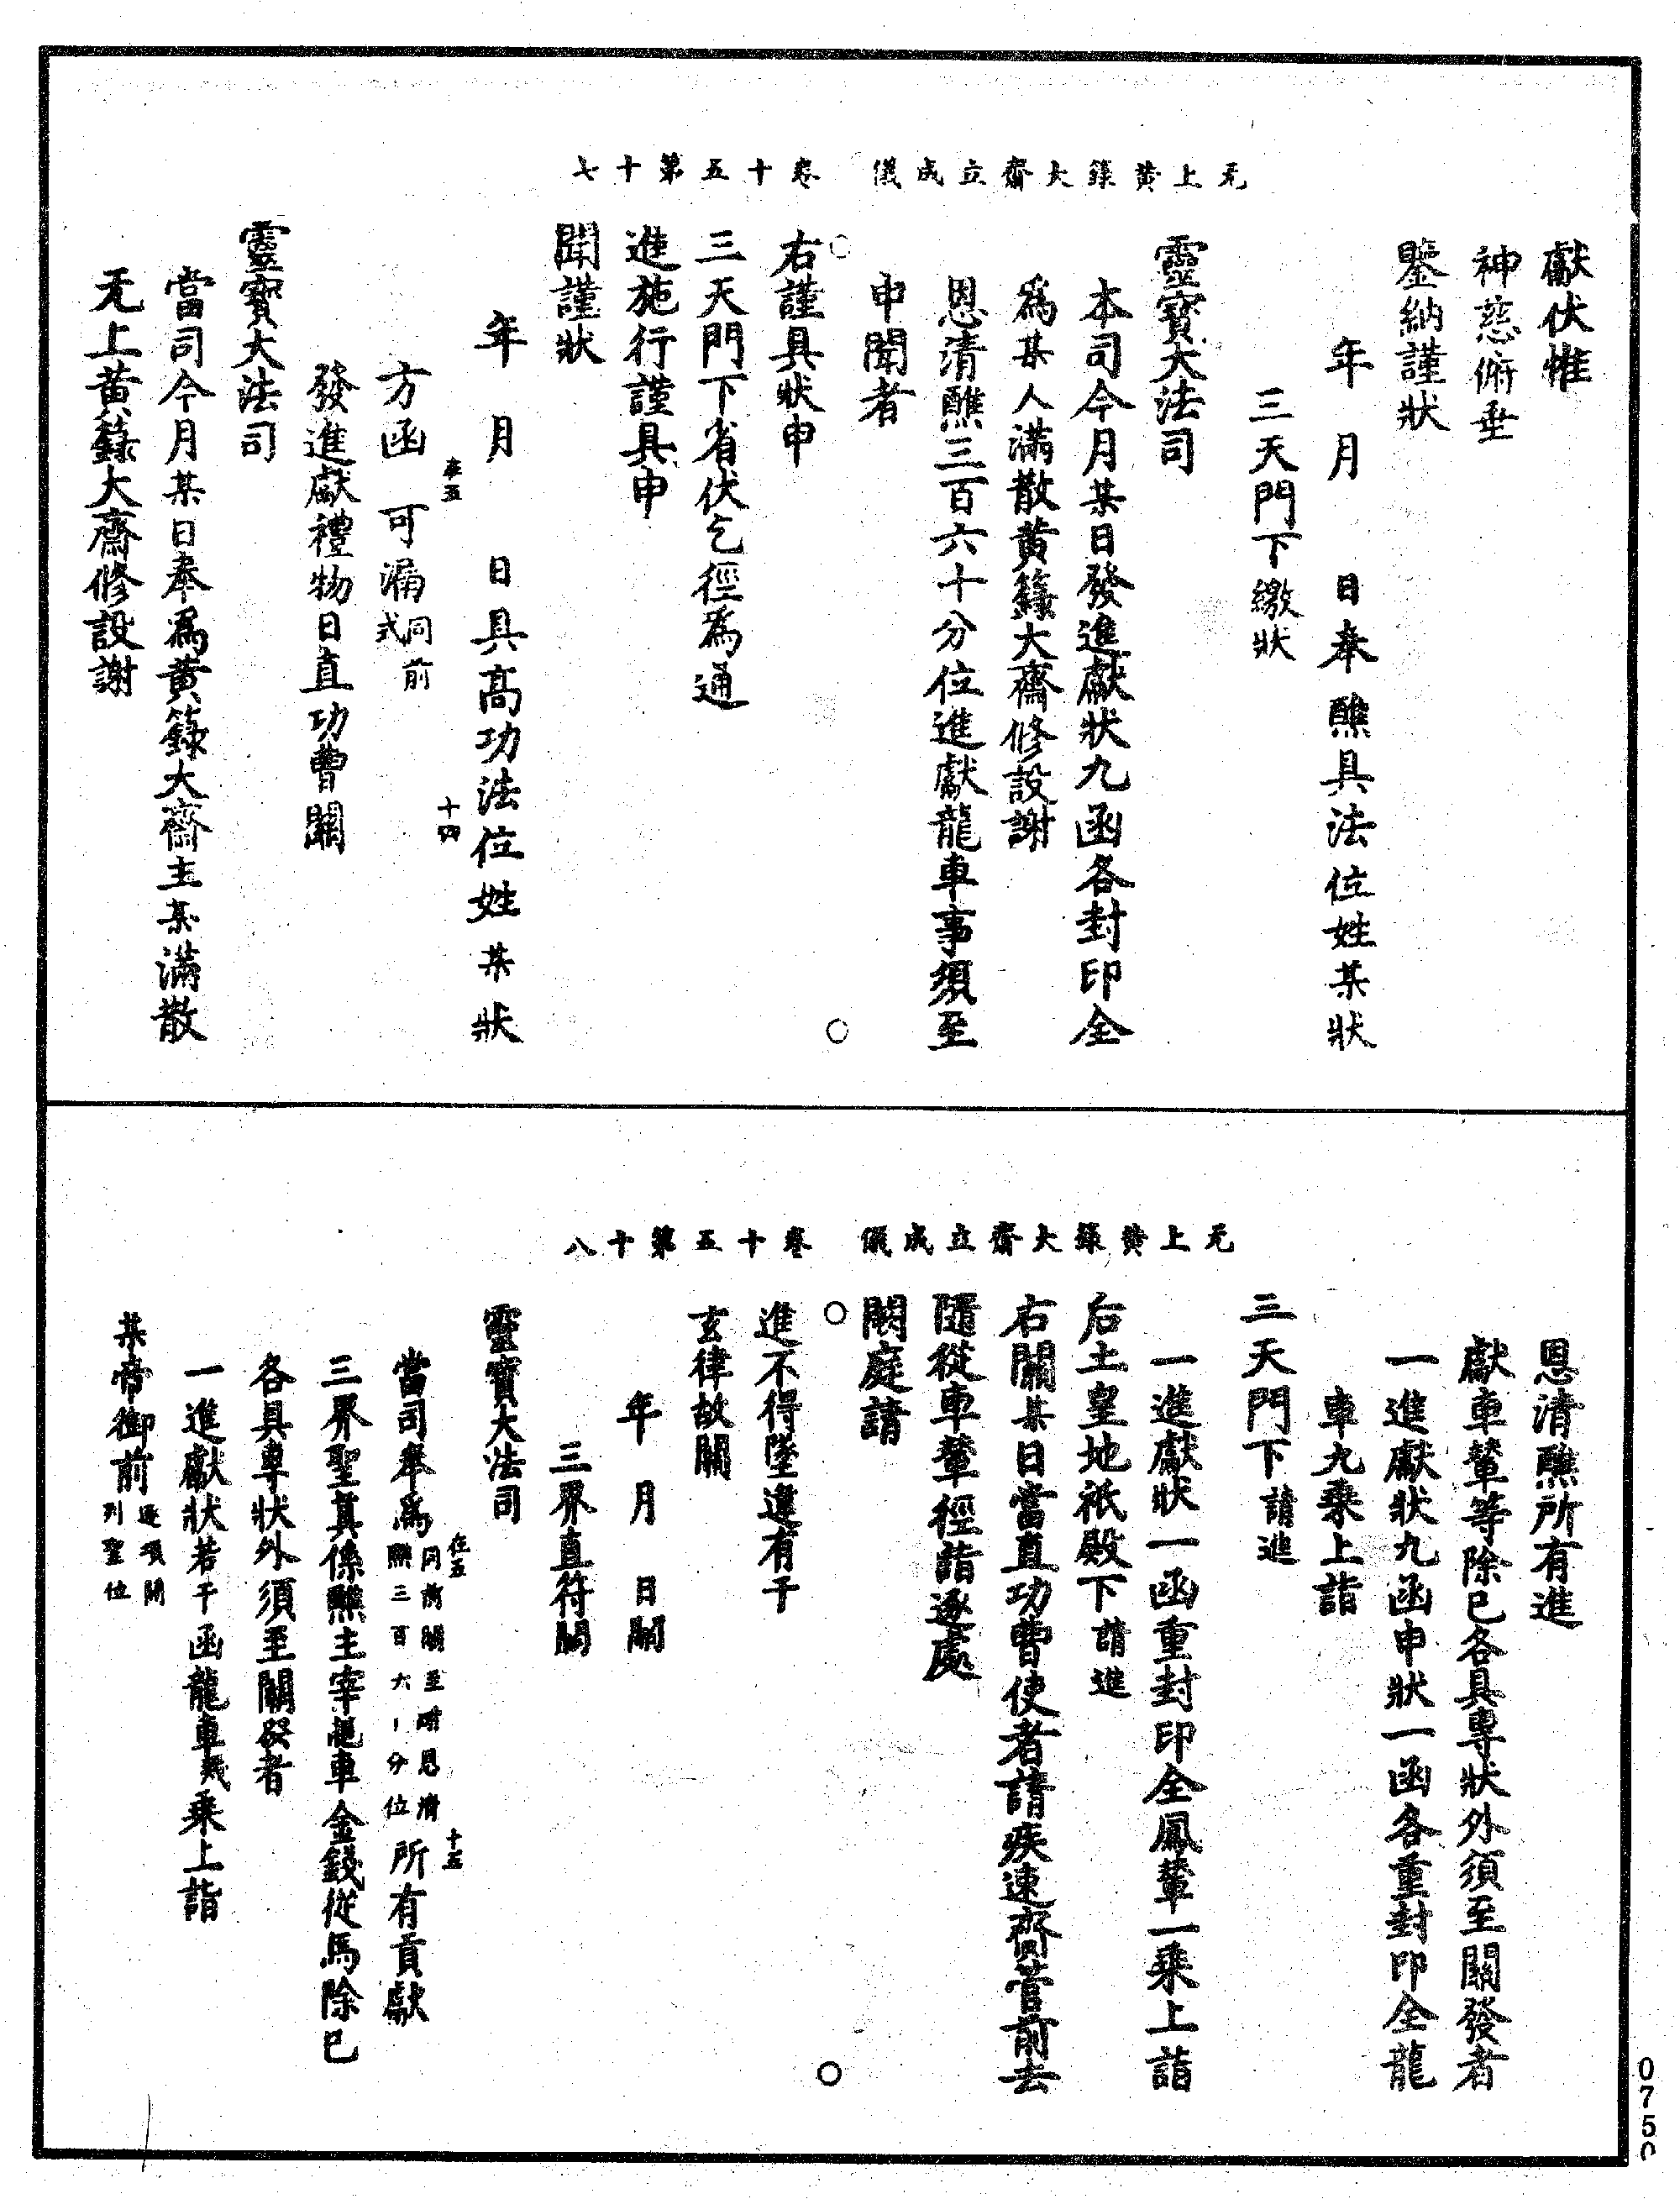 无上黃籙大齋立成儀　卷十五第十七
獻伏惟
神慈俯垂
鑒納謹狀
年　月　日奉醮具法位姓某狀
三天門下繳狀
靈寶大法司
本司今月某日發進獻狀九函各封印全
爲某人滿散黃籙大齋修設謝
恩清醮三百六十分位進獻龍車事須至
申聞者
右謹具狀申
三天門下省伏乞徑爲通
進施行謹具申
聞謹狀
年　月　日具高功法位姓某狀
方函　可漏式同前
發進獻禮物日直功曹關
靈寶大法司
當司今月某日奉爲黃籙大齋主某滿散
无上黃籙大齋修設謝
无上黃籙大齋立成儀　卷十五第十八
恩清醮所有進
獻車輦等除已各具專狀外須至關發者
一進獻狀九函申狀一函各重封印全龍
車九乘上詣
三天門下請進
一進獻狀一函重封印全鳳輦一乘上詣
后土皇地祇殿下請進
右關某日當直功曹使者請疾速齊管前去
隨從車輦徑詣逐處
闕庭請
進不得墜違有干
玄律故關
年　月　日關
三界直符關
靈寶大法司
當司奉爲同前關至謝恩清醮三百六十分位所有貢獻
三界聖眞係醮主宰龍車金錢從馬除已
各具專狀外須至關發者
一進獻狀若干函龍車幾乘上詣
某帝御前逐項開列聖位